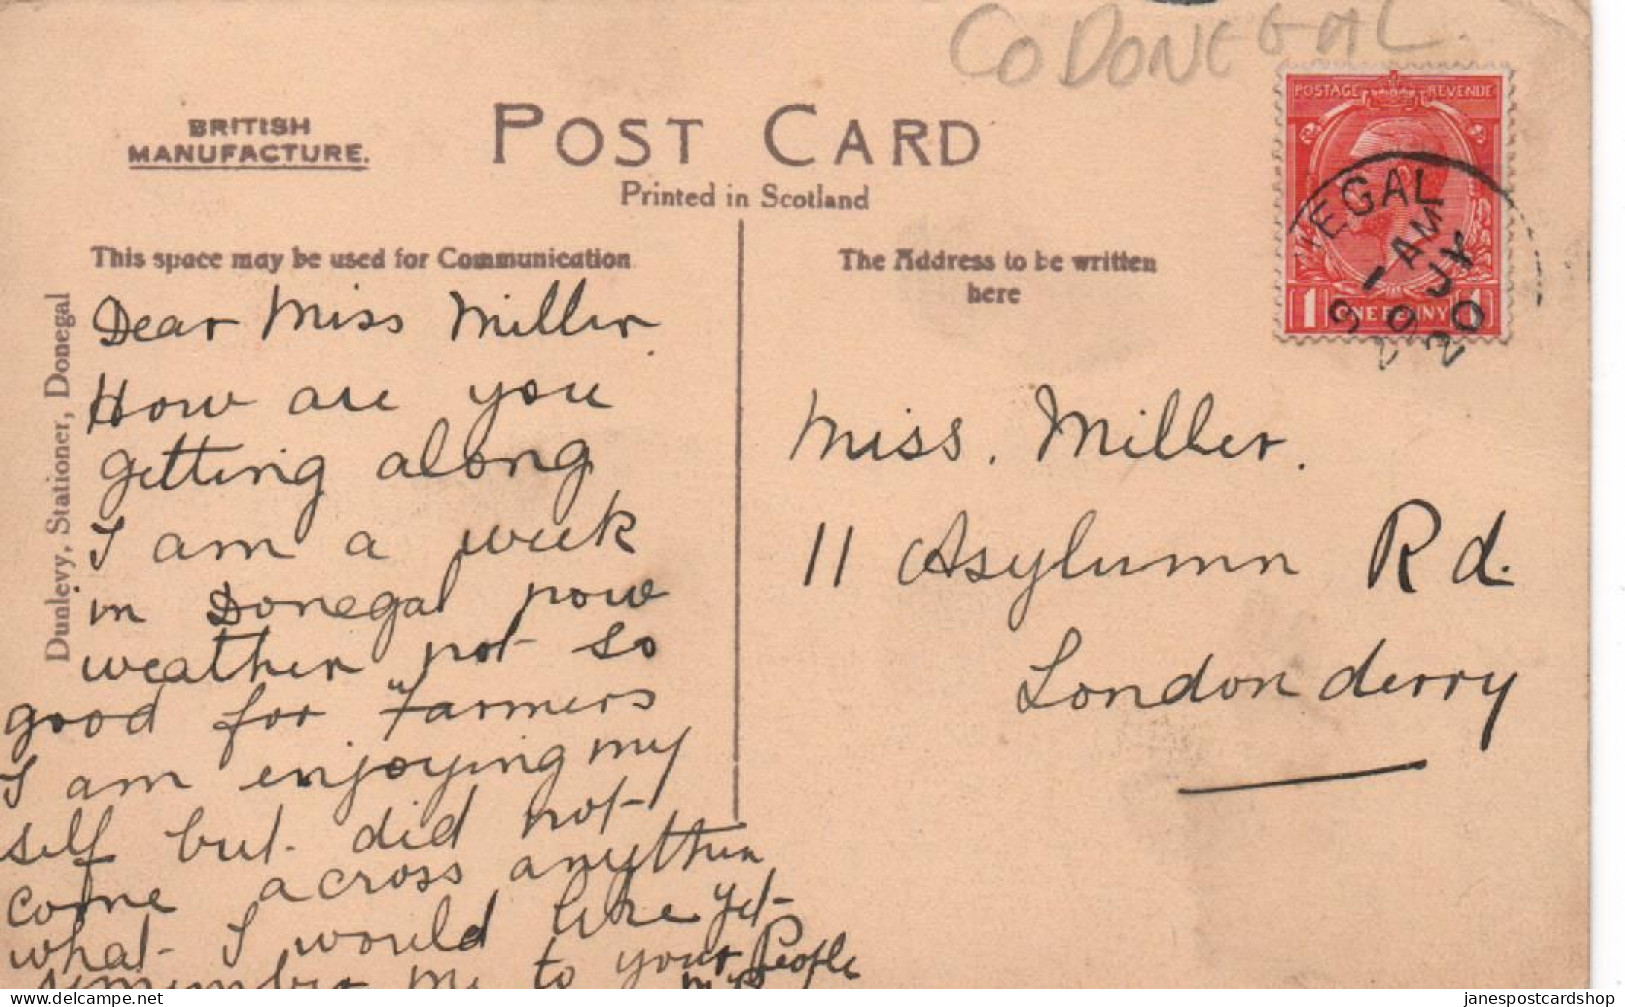 CO DONEGAL.
BRITISH
MANUFACTURE.
POST CARD
Printed in Scotland
POSTAGE REVENUE
1 ONE PENNY 1
NEGAL
AM
JY
20
This space may be used for Communication
The Address to be written
here
Dunlevy, Stationer, Donegal
Dear Miss Miller.
How are you
getting along
I am a week
in Donegal now
weather not so
good for Farmers
I am enjoying my
self but did not
come across anythin
what I would like yet
remember me to your People
Miss. Miller.
11 Asylumn Rd.
Londonderry
janespostcardshop